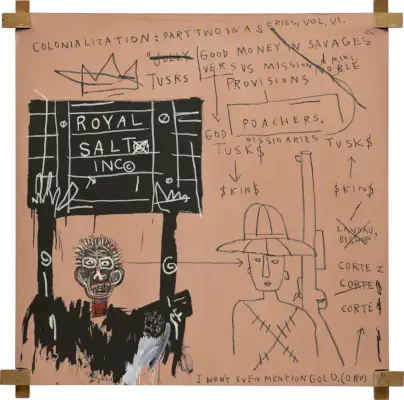 COLONIALIZATION: PART TWO IN A $ERIES, VOL. VI.
"JOLLY GOOD MONEY IN SAVAGES"
TUSKS VERSUS MISSION NOBLE
PROVISIONS
POACHERS.
MISSIONARIES
GOD
TUSK$ TUSK$
ROYAL
SALT
INC©
$KIN$ $KIN$
LANDAU,
CORTEZ
CORTE
CORTÉ$
I WONT EVEN MENTION GOLD. (ORO)